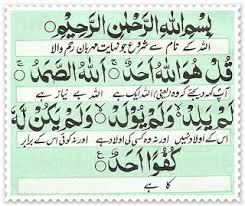 بِسْمِ اللهِ الرَّحْمٰنِ الرَّحِيْمِ
اللہ کے نام سے شروع جو نہایت مہربان رحم والا
قُلْ هُوَ اللهُ اَحَدٌ ۚ اَللهُ الصَّمَدُ ۚ
آپ کہہ دیجئے کہ وہ (یعنی) اللہ ایک ہے اللہ بے نیاز ہے
لَمْ يَلِدْ ۙ وَلَمْ يُوْلَدْ ۙ وَلَمْ يَكُنْ لَّهٗ
اس کے اولاد نہیں اور نہ وہ کسی کی اولاد ہے اور نہ کوئی اس کے برابر
كُفُوًا اَحَدٌ
کا ہے